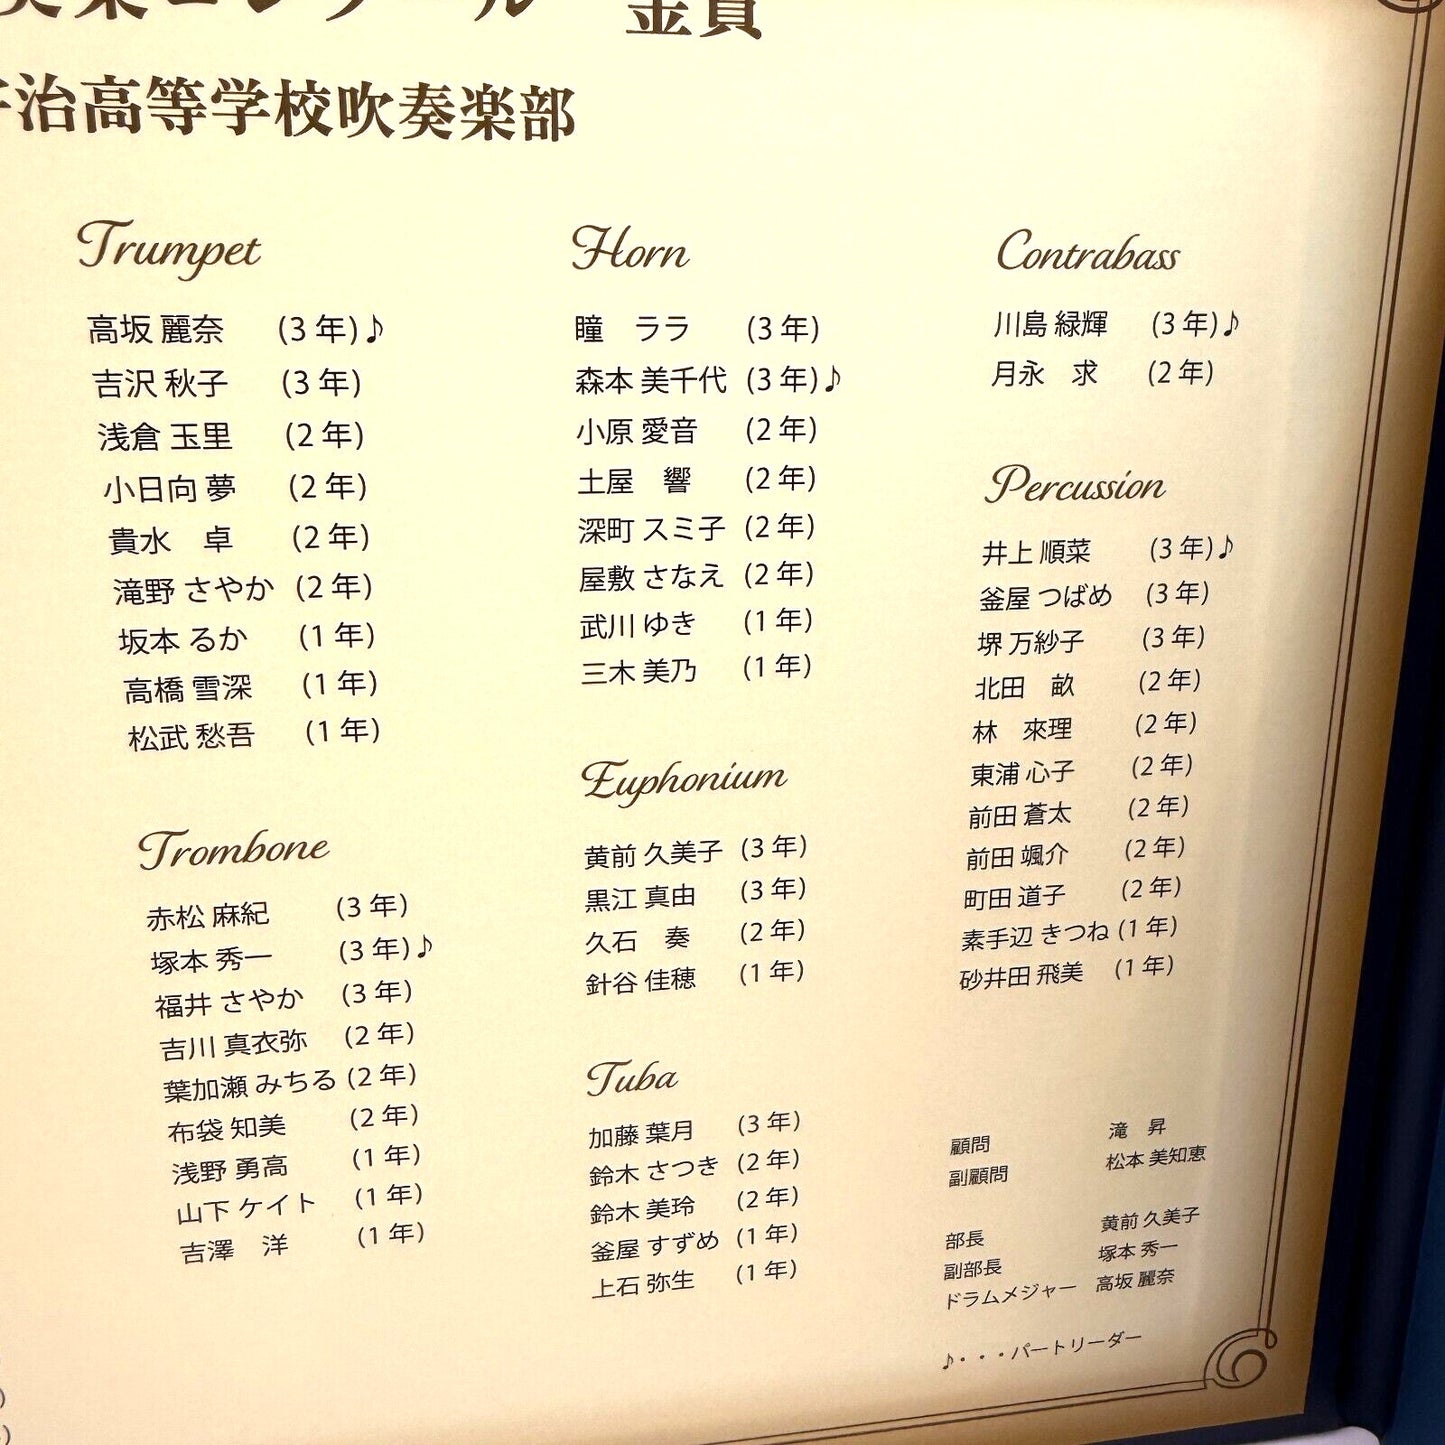 吹奏楽コンクール 金賞
宇治高等学校吹奏楽部
Trumpet
高坂 麗奈 (3 年)♪
吉沢 秋子 (3 年)
浅倉 玉里 (2 年)
小日向 夢 (2 年)
貴水 卓 (2 年)
滝野 さやか (2 年)
坂本 るか (1 年)
高橋 雪深 (1 年)
松武 愁吾 (1 年)
Trombone
赤松 麻紀 (3 年)
塚本 秀一 (3 年)♪
福井 さやか (3 年)
吉川 真衣弥 (2 年)
葉加瀬 みちる (2 年)
布袋 知美 (2 年)
浅野 勇高 (1 年)
山下 ケイト (1 年)
吉澤 洋 (1 年)
Horn
瞳 ララ (3 年)
森本 美千代 (3 年)♪
小原 愛音 (2 年)
土屋 響 (2 年)
深町 スミ子 (2 年)
屋敷 さなえ (2 年)
武川 ゆき (1 年)
三木 美乃 (1 年)
Euphonium
黄前 久美子 (3 年)
黒江 真由 (3 年)
久石 奏 (2 年)
針谷 佳穂 (1 年)
Tuba
加藤 葉月 (3 年)
鈴木 さつき (2 年)
鈴木 美玲 (2 年)
釜屋 すずめ (1 年)
上石 弥生 (1 年)
Contrabass
川島 緑輝 (3 年)♪
月永 求 (2 年)
Percussion
井上 順菜 (3 年)♪
釜屋 つばめ (3 年)
堺 万紗子 (3 年)
北田 畝 (2 年)
林 來理 (2 年)
東浦 心子 (2 年)
前田 蒼太 (2 年)
前田 颯介 (2 年)
町田 道子 (2 年)
素手辺 きつね (1 年)
砂井田 飛美 (1 年)
顧問 滝 昇
副顧問 松本 美知恵
部長 黄前 久美子
副部長 塚本 秀一
ドラムメジャー 高坂 麗奈
♪・・・パートリーダー